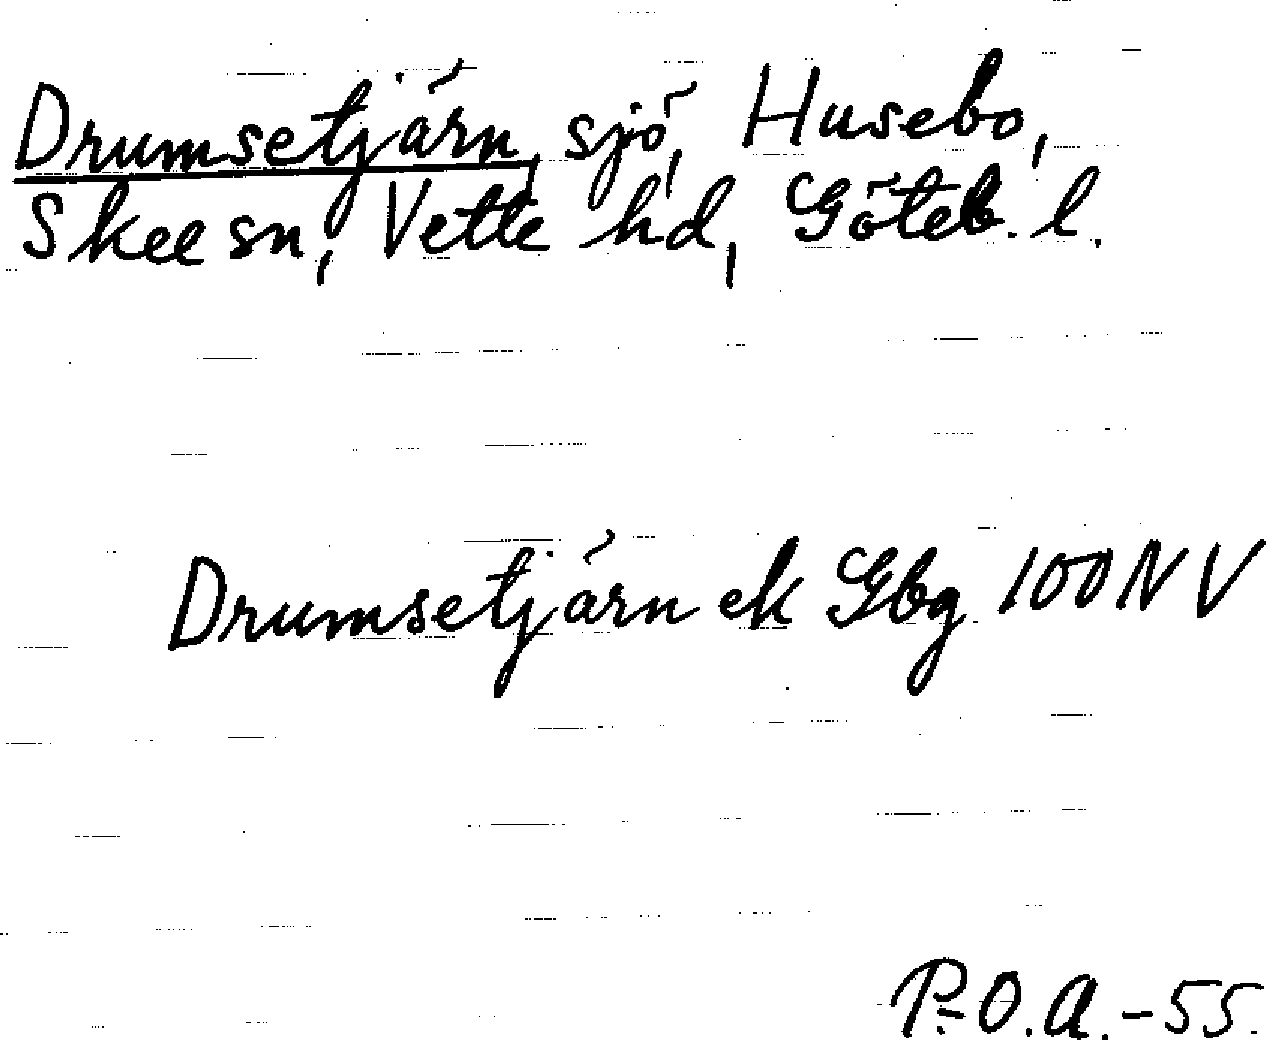 Drumsetjärn, sjö, Husebo,
Skee sn, Vette hd, Göteb. l.
Drumsetjärn ek Gbg 100 NV
P.-O.A.-55.